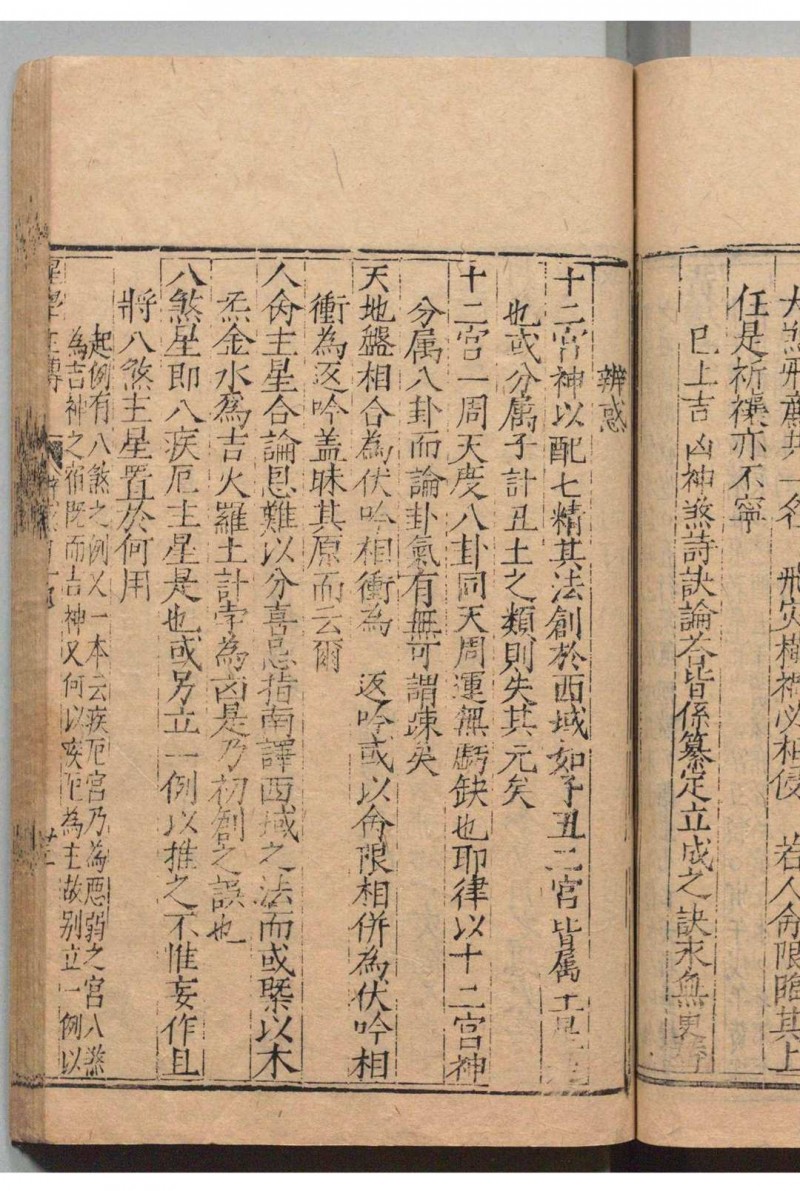 大煞飛廉共一名　飛灾橫禍必相侵　若人命限臨其上
任是祈禳亦不寧
已上吉凶神煞詩訣論荅皆係纂定立成之訣永無更
辨惑
十二宮神以配七精其法創於西域如子丑二宮皆属土
也或分属子計丑土之類則失其元矣
十二宮一周天度八卦同天周運無虧缺也耶律以十二宮神
分属八卦而論卦氣有無可謂疎矣
天地盤相合為伏吟相衝為　返吟或以命限相併為伏吟相
衝為返吟盖昧其原而云爾
人命主星合論恩難以分喜忌指南譯西域之法而或槩以木
炁金水爲吉火羅土計孛為凶是乃初創之誤也
八煞星即八疾厄主星是也或另立一例以推之不惟妄作且
將八煞主星置於何用
起例有八煞之例又一本云疾厄宮乃為惡弱之宮八煞
為吉神之宿既而吉神又何以疾厄為主故别立一例以